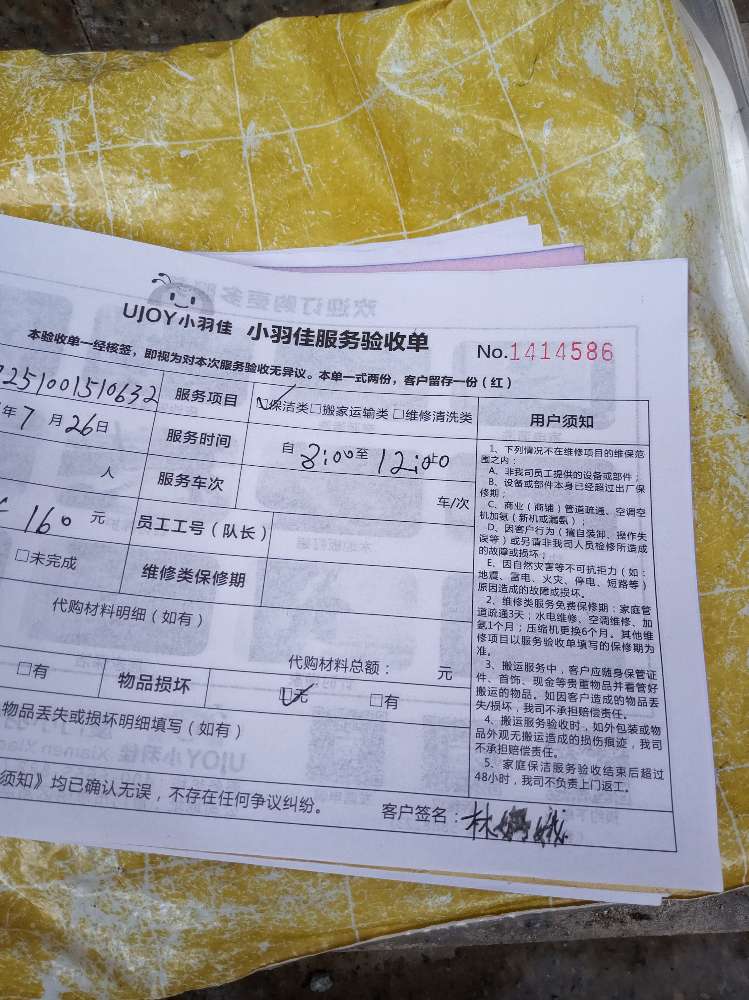 UJOY小羽佳 小羽佳服务验收单
No.1414586
本验收单一经核签，即视为对本次服务验收无异议。本单一式两份，客户留存一份（红）
251001510632 服务项目 保洁类□搬家运输类□维修清洗类 用户须知
年7月26日 服务时间 自8:00至12:00
人 服务车次 车/次
160元 员工工号（队长）
□未完成 维修类保修期
代购材料明细（如有）
代购材料总额： 元
□有 物品损坏 □无 □有
物品丢失或损坏明细填写（如有）
须知》均已确认无误，不存在任何争议纠纷。 客户签名：林
1、下列情况不在维修项目的维保范
围之内：
A、非我司员工提供的设备或部件；
B、设备或部件本身已经超过出厂保
修期；
C、商业（商铺）管道疏通、空调空
机加氨（新机或漏氨）；
D、因客户行为（擅自装卸、操作失
误等）或另请非我司人员检修所造成
的故障或损坏；
E、因自然灾害等不可抗拒力（如：
地震、雷电、火灾、停电、短路等）
原因造成的故障或损坏。
2、维修类服务免费保修期：家庭管
道疏通3天；水电维修、空调维修、加
氨1个月；压缩机更换6个月。其他维
修项目以服务验收单填写的保修期为
准。
3、搬运服务中，客户应随身保管证
件、首饰、现金等贵重物品并看管好
搬运的物品。如因客户造成的物品丢
失/损坏，我司不承担赔偿责任。
4、搬运服务验收时，如外包装或物
品外观无搬运造成的损伤痕迹，我司
不承担赔偿责任。
5、家庭保洁服务验收结束后超过
48小时，我司不负责上门返工。